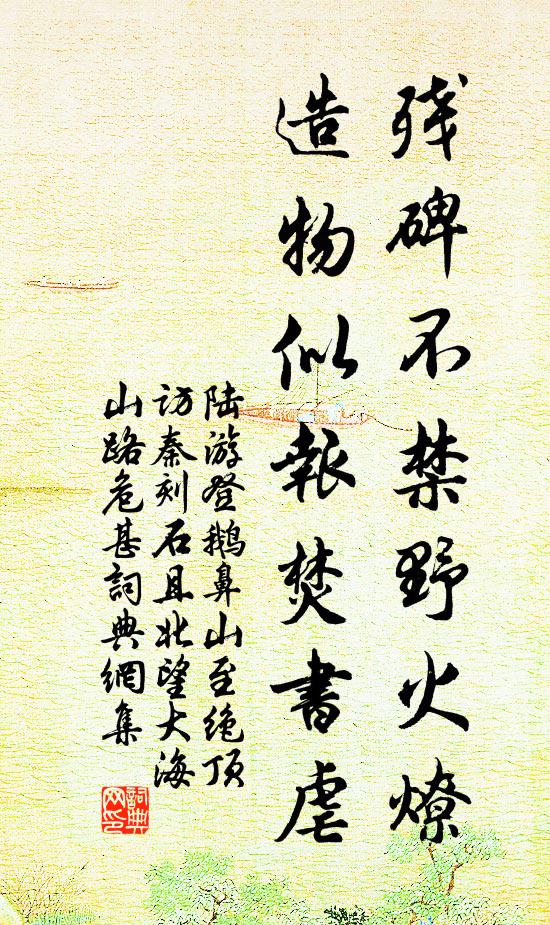 残碑不禁野火燎
造物似報焚書虐
陆游登鹅鼻山至绝顶
访秦刻石且北望大海
山路危甚詞典網集
詞典
网印